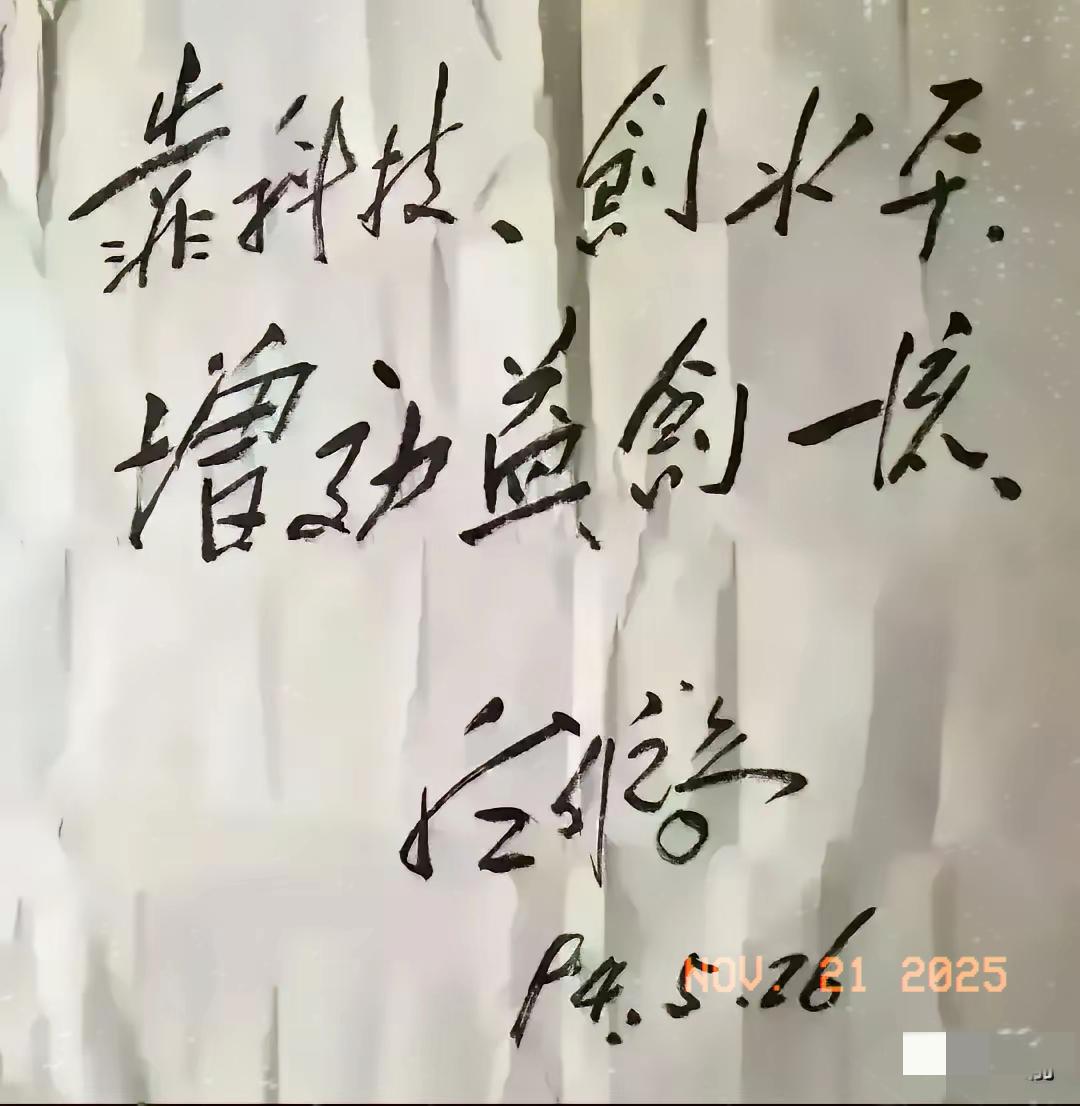 靠科技、創水平.
增効益創一流、
94.5.26
NOV. 21 2025